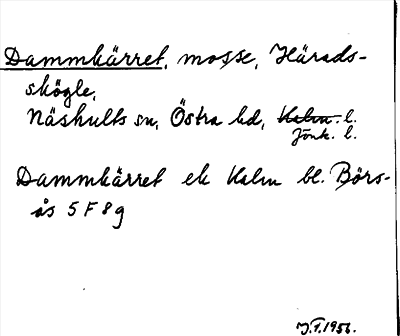 Dammkärret, mosse, Härads-
skögle,
Näshults sn, Östra hd, Kalm. l.
Jönk. l.
Dammkärret ek Kalm bl. Börs-
ås 5 F 8 g
J.F. 1956.